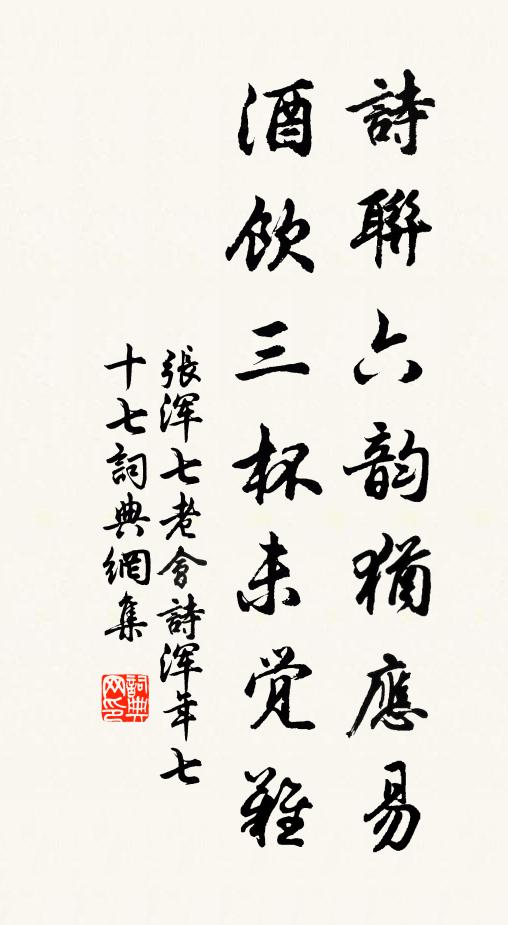 詩聯六韵猶應易
酒飲三杯未覚難
張渾七老會詩渾年七
十七詞典網集
詞典
网印